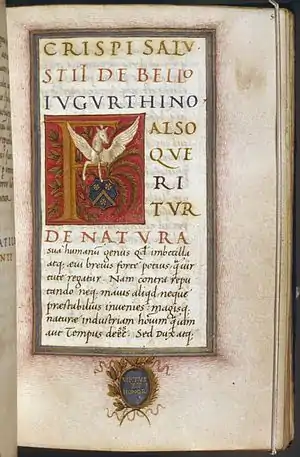 CRISPI SALV
STII DE BELLO
IVGVRTHINO
F
ALSO
QVE
RI
TVR
DE NATVRA
sua humanū genus qđ imbecilla
atq; aevi brevis forte potius quā vir
tute regatur. Nam contra repu
tando neq; maius aliqđ neque
præstabilius invenies: magisq;
naturæ industriam hoīum quam
aut Tempus deēē. Sed Dux atq;
VIRTVS
ET
HONOR